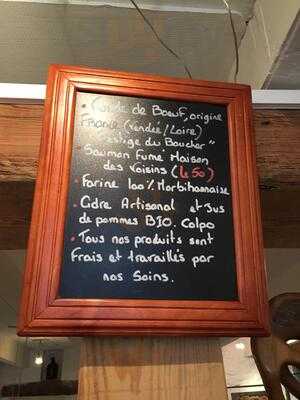 • Viande de Boeuf, origine
France (Vendée/Loire)
"Prestige du Boucher"
• Saumon Fumé Maison
des voisins (LE 50)
• Farine 100% Morbihannaise
• Cidre Artisanal et jus
de pommes BIO. Colpo
• Tous nos produits sont
Frais et travaillés par
nos Soins.